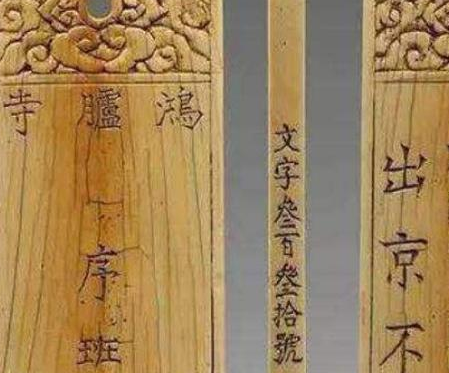 鴻臚寺
序班
文字叄百叄拾號
出京不